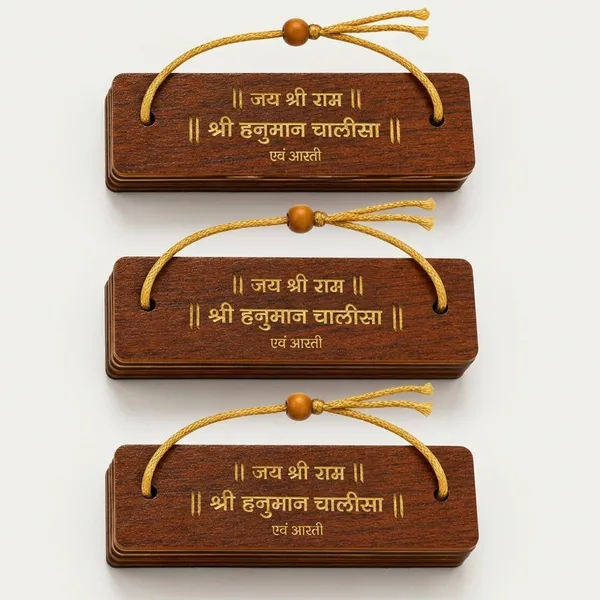 || जय श्री राम ||
|| श्री हनुमान चालीसा ||
एवं आरती
|| जय श्री राम ||
|| श्री हनुमान चालीसा ||
एवं आरती
|| जय श्री राम ||
|| श्री हनुमान चालीसा ||
एवं आरती